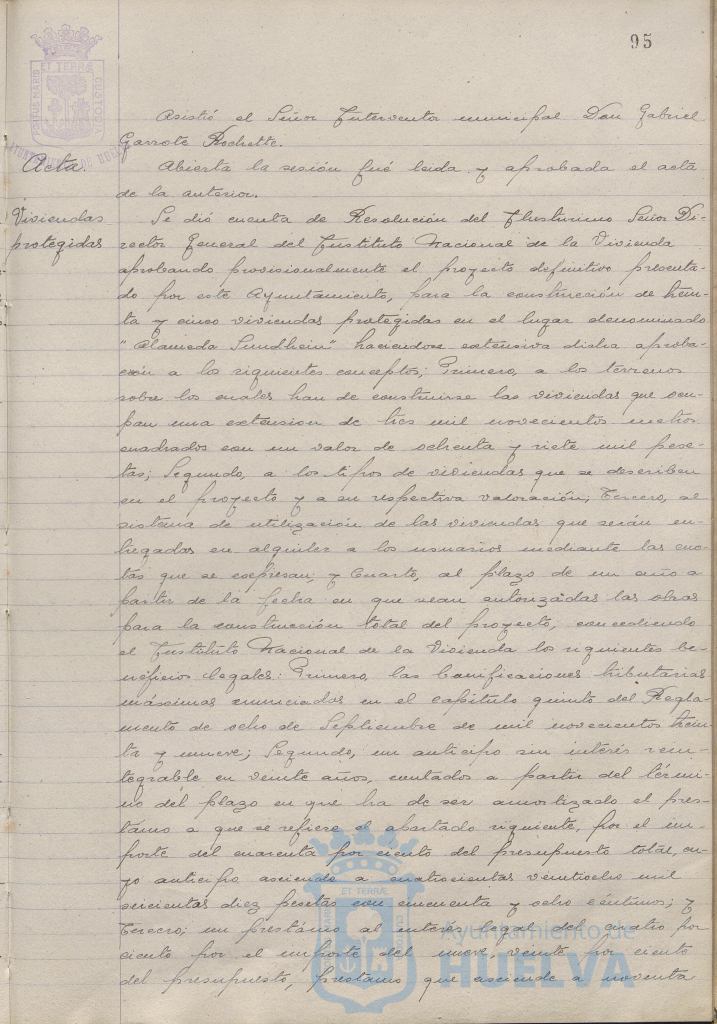 95
PORTUS MARIS
ET TERRÆ
CUSTODIA
AYUNTAMIENTO DE HUELVA
Asistió el Señor Interventor municipal Don Gabriel
Garrote Rochette.
Acta.
Abierta la sesión fué leida y aprobada el acta
de la anterior.
Viviendas
protegidas
Se dió cuenta de Resolución del Ilustrísimo Señor Di-
rector General del Instituto Nacional de la Vivienda
aprobando provisionalmente el proyecto definitivo presenta-
do por este Ayuntamiento, para la construcción de trein-
ta y cinco viviendas protegidas en el lugar denominado
"Alameda Sundhein" haciendose extensiva dicha aproba-
ción a los siguientes conceptos; Primero, a los terrenos
sobre los cuales han de construirse las viviendas que ocu-
pan una extension de tres mil novecientos metros
cuadrados con un valor de ochenta y siete mil pese-
tas; Segundo, a los tipos de viviendas que se describen
en el proyecto y a su respectiva valoración; Tercero, al
sistema de utilización de las viviendas que serán en-
tregadas en alquiler a los usuarios mediante las cuo-
tas que se expresan, y Cuarto, al plazo de un año a
partir de la fecha en que sean autorizadas las obras
para la construcción total del proyecto; concediendo
el Instituto Nacional de la Vivienda los siguientes be-
neficios legales: Primero, las bonificaciones tributarias
máximas enunciadas en el capítulo quinto del Regla-
mento de ocho de Septiembre de mil novecientos trein-
ta y nueve; Segundo, un anticipo sin interés rein-
tegrable en veinte años, contados a partir del térmi-
no del plazo en que ha de ser amortizado el pres-
tamo a que se refiere el apartado siguiente, por el im-
porte del cuarenta por ciento del presupuesto total, cu-
yo anticipo asciende a cuatrocientas veintiocho mil
seiscientas diez pesetas con cincuenta y ocho céntimos; y
Tercero; un préstamo al interés legal del cuatro por
ciento por el importe del nueve, veinte por ciento
del presupuesto, prestamo que asciende a noventa
ET TERRÆ
Ayuntamiento de
HUELVA